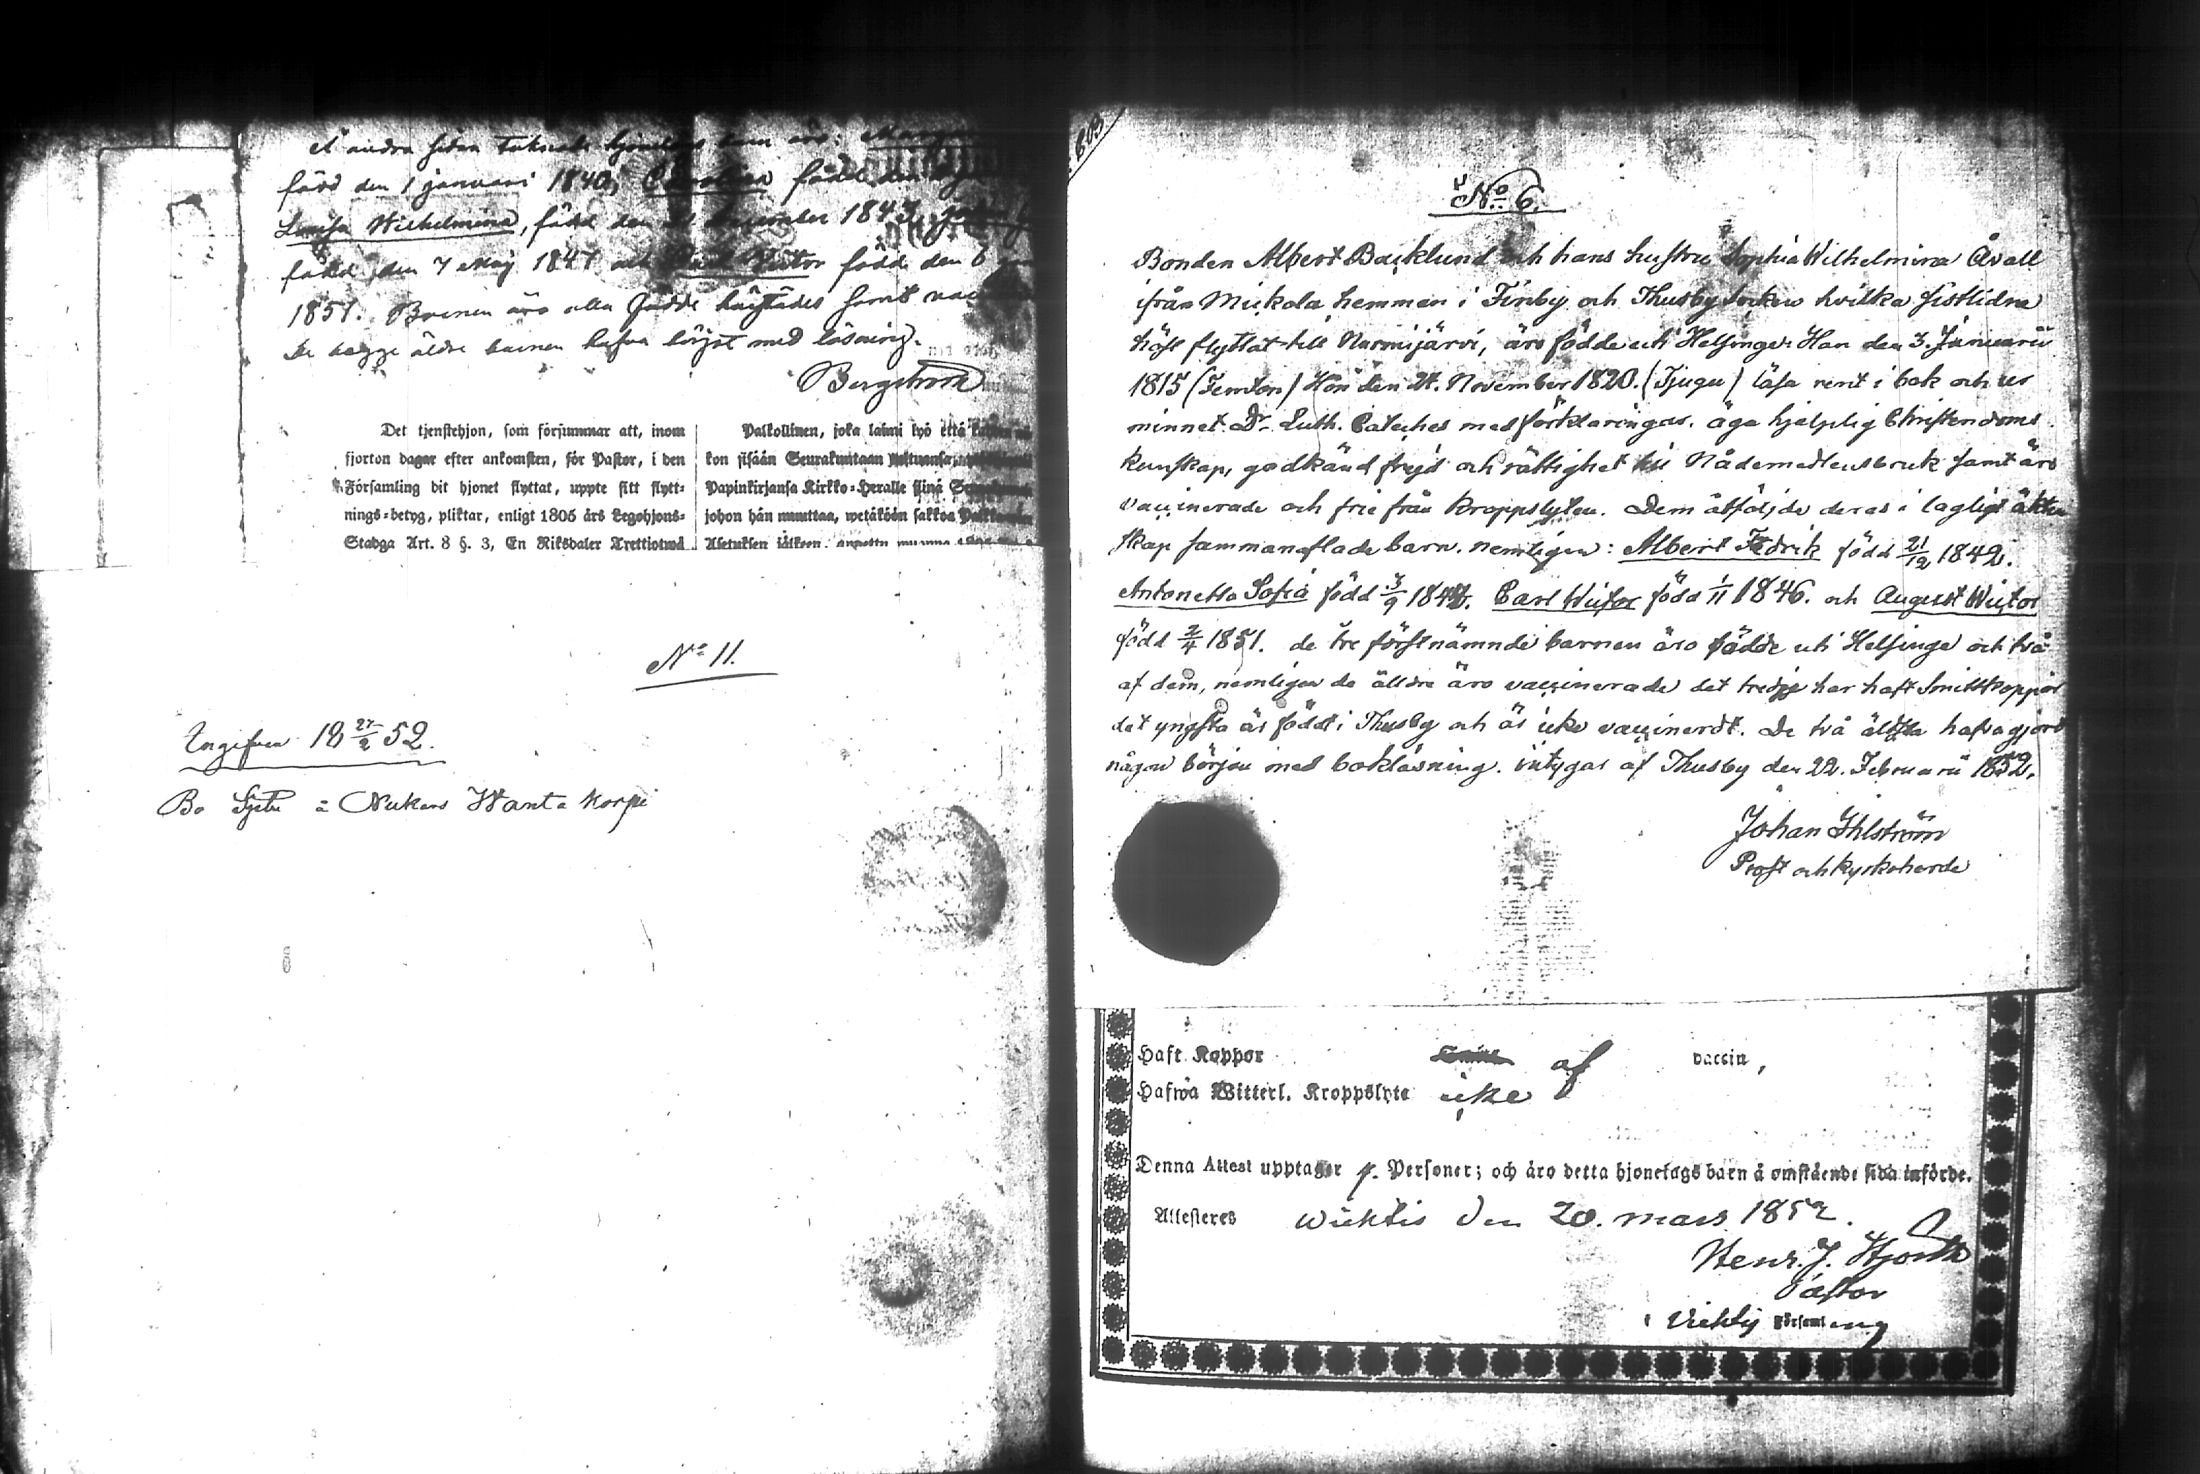 å andra sidan
född den 1 januari 1840; Carolina född den
Lovisa Wilhelmina, född den December 1843,
född den 7 Maj 1847 och Victor född den 6
1851. Barnen äro alla födde härstädes samt
De begge äldre barnen hafva börjat med läsning.
Bergström
Det tjenstehjon, som försummar att, inom
fjorton dagar efter ankomsten, för Pastor, i den
Församling dit hjonet flyttat, uppte sitt flytt-
nings-betyg, pliktar, enligt 1805 års Legohjons-
Stadga Art. 8 §. 3, En Riksdaler Trettiotwå
Palkollinen, joka laimi lyö että
kon sisään Seurakuntaan
Papinkirjansa Kirkko-Herralle siinä
johon hän muuttaa, wetäköön sakkoa
Asetuksen jälkeen
No 11.
Ingifven 18 27/2 52.
Bo å Nukars Wantakorpi
No 6.
Bonden Albert Backlund och hans hustru Sophia Wilhelmina Åvall
ifrån Mickola hemman i Finby och Thusby Socken hvilka sistlidne
höst flyttat till Nurmijärvi, äro födde uti Helsinge. Han den 3. Januarii
1815 (Femton) Hon den 21. November 1820. (Tjugu) läsa rent i bok och ur
minnet Dr. Luth. Cateches med förklaringar, äga hjelplig Christendoms
kunskap, godkänd frejd och rättighet till Nådemedlens bruk samt äro
vaccinerade och frie från Kroppslyten. Dem åtfölja deras i lagligt äkten
skap sammanaflade barn, nemligen: Albert Fredrik född 21/12 1842.
Antonetta Sofia född 3/9 184 . Carl Victor född 1/11 1846. och August Victor
född 2/4 1851. de tre förstnämnde barnen äro födde uti Helsinge och två
af dem, nemligen de äldre äro vaccinerade det tredje har haft Smittkoppor
det yngsta är född i Thusby och är icke vaccinerdt. De två äldsta hafva gjord
någon början med bokläsning. intygar af Thusby den 22. Februarii 1852.
Johan Ihlström
Prost och kyrkoherde
Haft Koppor af vaccin,
Hafwa Witterl. Kroppslyte icke
Denna Attest upptager Personer; och äro detta hjonelags barn å omstående sida införde.
Attesteres Wichtis den 20. mars 1852.
Henr. J. Hjorth
Pastor
i Vichtis Församl ing